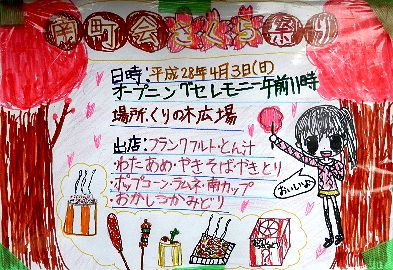 南町会さくら祭り
日時:平成28年4月3日(日)
オープニングセレモニー午前11時
場所:くりの木広場
出店:フランクフルト・とん汁
・わたあめ・やきそば・やきとり
・ポップコーン・ラムネ・南カップ
・おかしつかみどり
おいしいよ